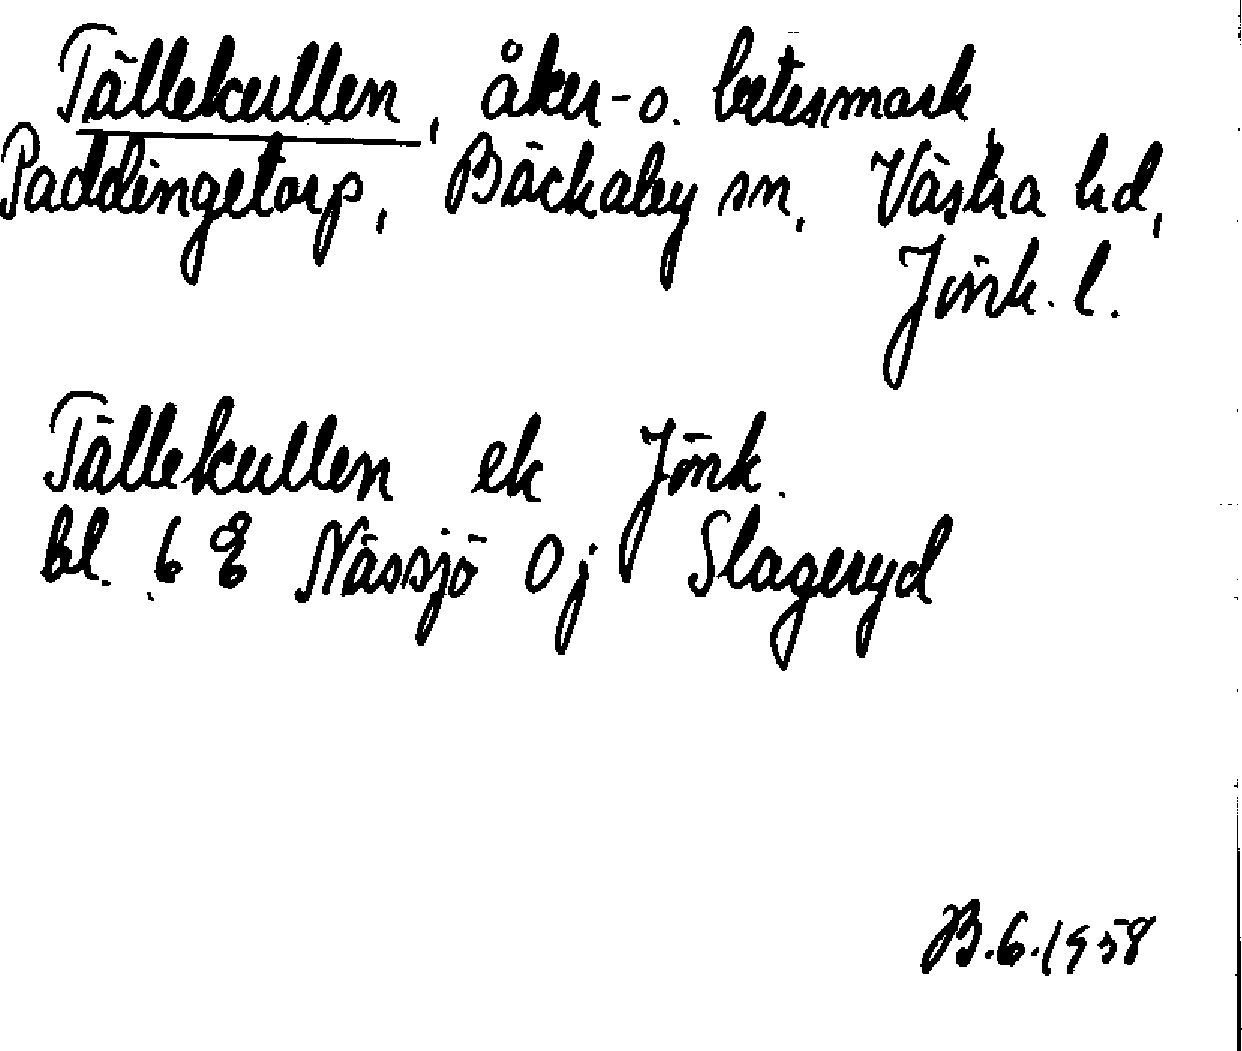 Tällekullen, åker- o. betesmark
Paddingetorp, Bäckaby sn, Västra hd,
Jönk. l.
Tällekullen ek Jönk.
bl. 6 E Nässjö 0j Slageryd
B.6.1958